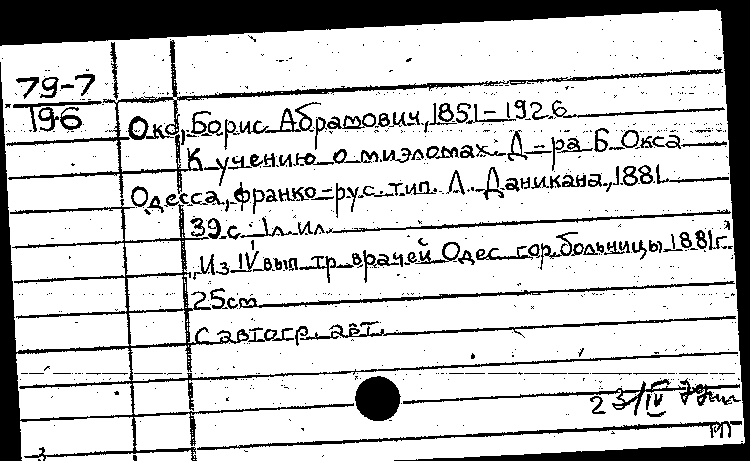 79-7
196
Окс, Борис Абрамович, 1851-1926
К учению о миэломах. Д-ра Б. Окса
Одесса, франко-рус. тип. Л. Даникана, 1881.
39 с.; 1 л. ил.
"Из IV вып. тр. врачей Одес. гор. больницы, 1881 г."
25 cm
С автогр. авт.
23/IV
РП
3